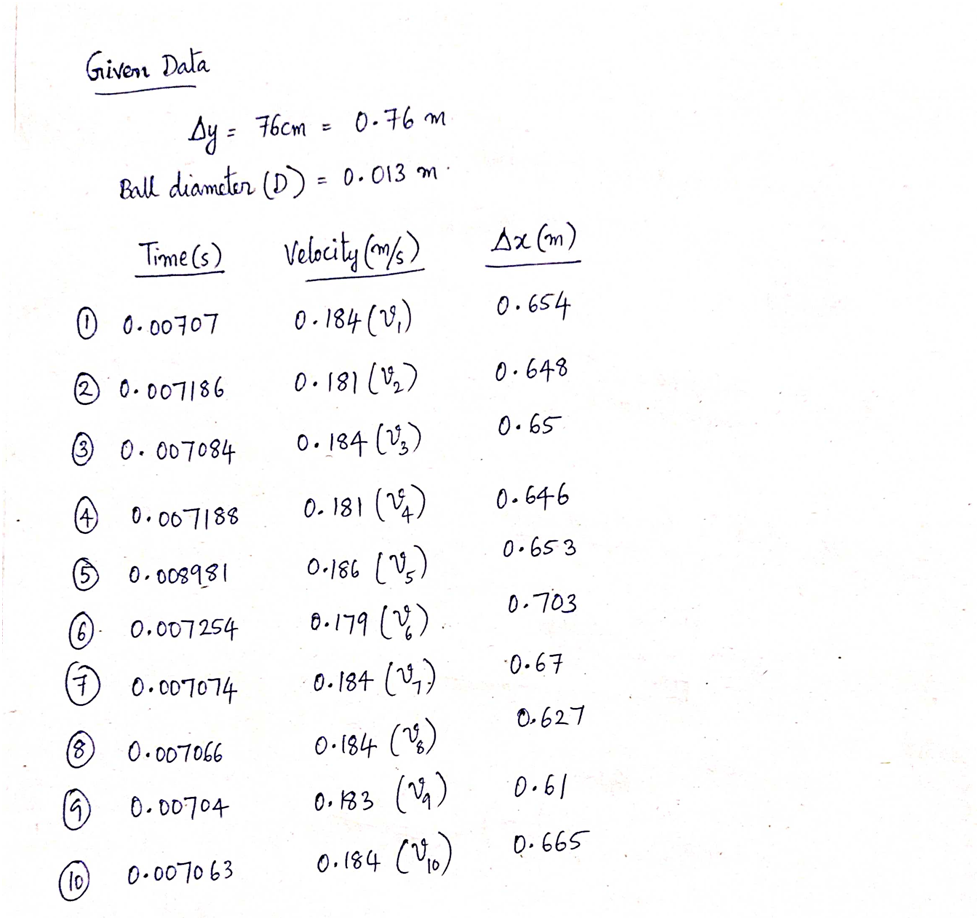 Given Data
Δy = 76cm = 0.76 m
Ball diameter (D) = 0.013 m.
Time(s) Velocity (m/s) Δx (m)
① 0.00707 0.184 (v₁) 0.654
② 0.007186 0.181 (v₂) 0.648
③ 0.007084 0.184 (v₃) 0.65
④ 0.007188 0.181 (v₄) 0.646
⑤ 0.008981 0.186 (v₅) 0.653
⑥ 0.007254 0.179 (v₆) 0.703
⑦ 0.007074 0.184 (v₇) 0.67
⑧ 0.007066 0.184 (v₈) 0.627
⑨ 0.00704 0.183 (v₉) 0.61
⑩ 0.007063 0.184 (v₁₀) 0.665